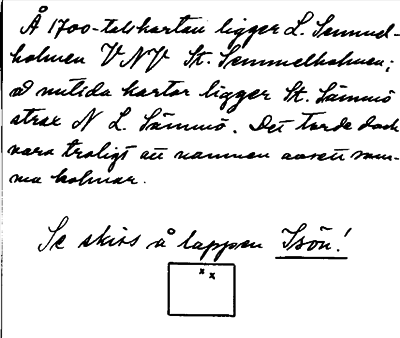 Å 1700-talskartan ligger L. Semmel-
holmen VNV St. Semmelholmen;
å nutida kartor ligger St. Sämmö
strax N L. Sämmö. Det torde dock
vara troligt att namnen avsett sam-
ma holmar.
Se skiss å lappen Isön!
x x